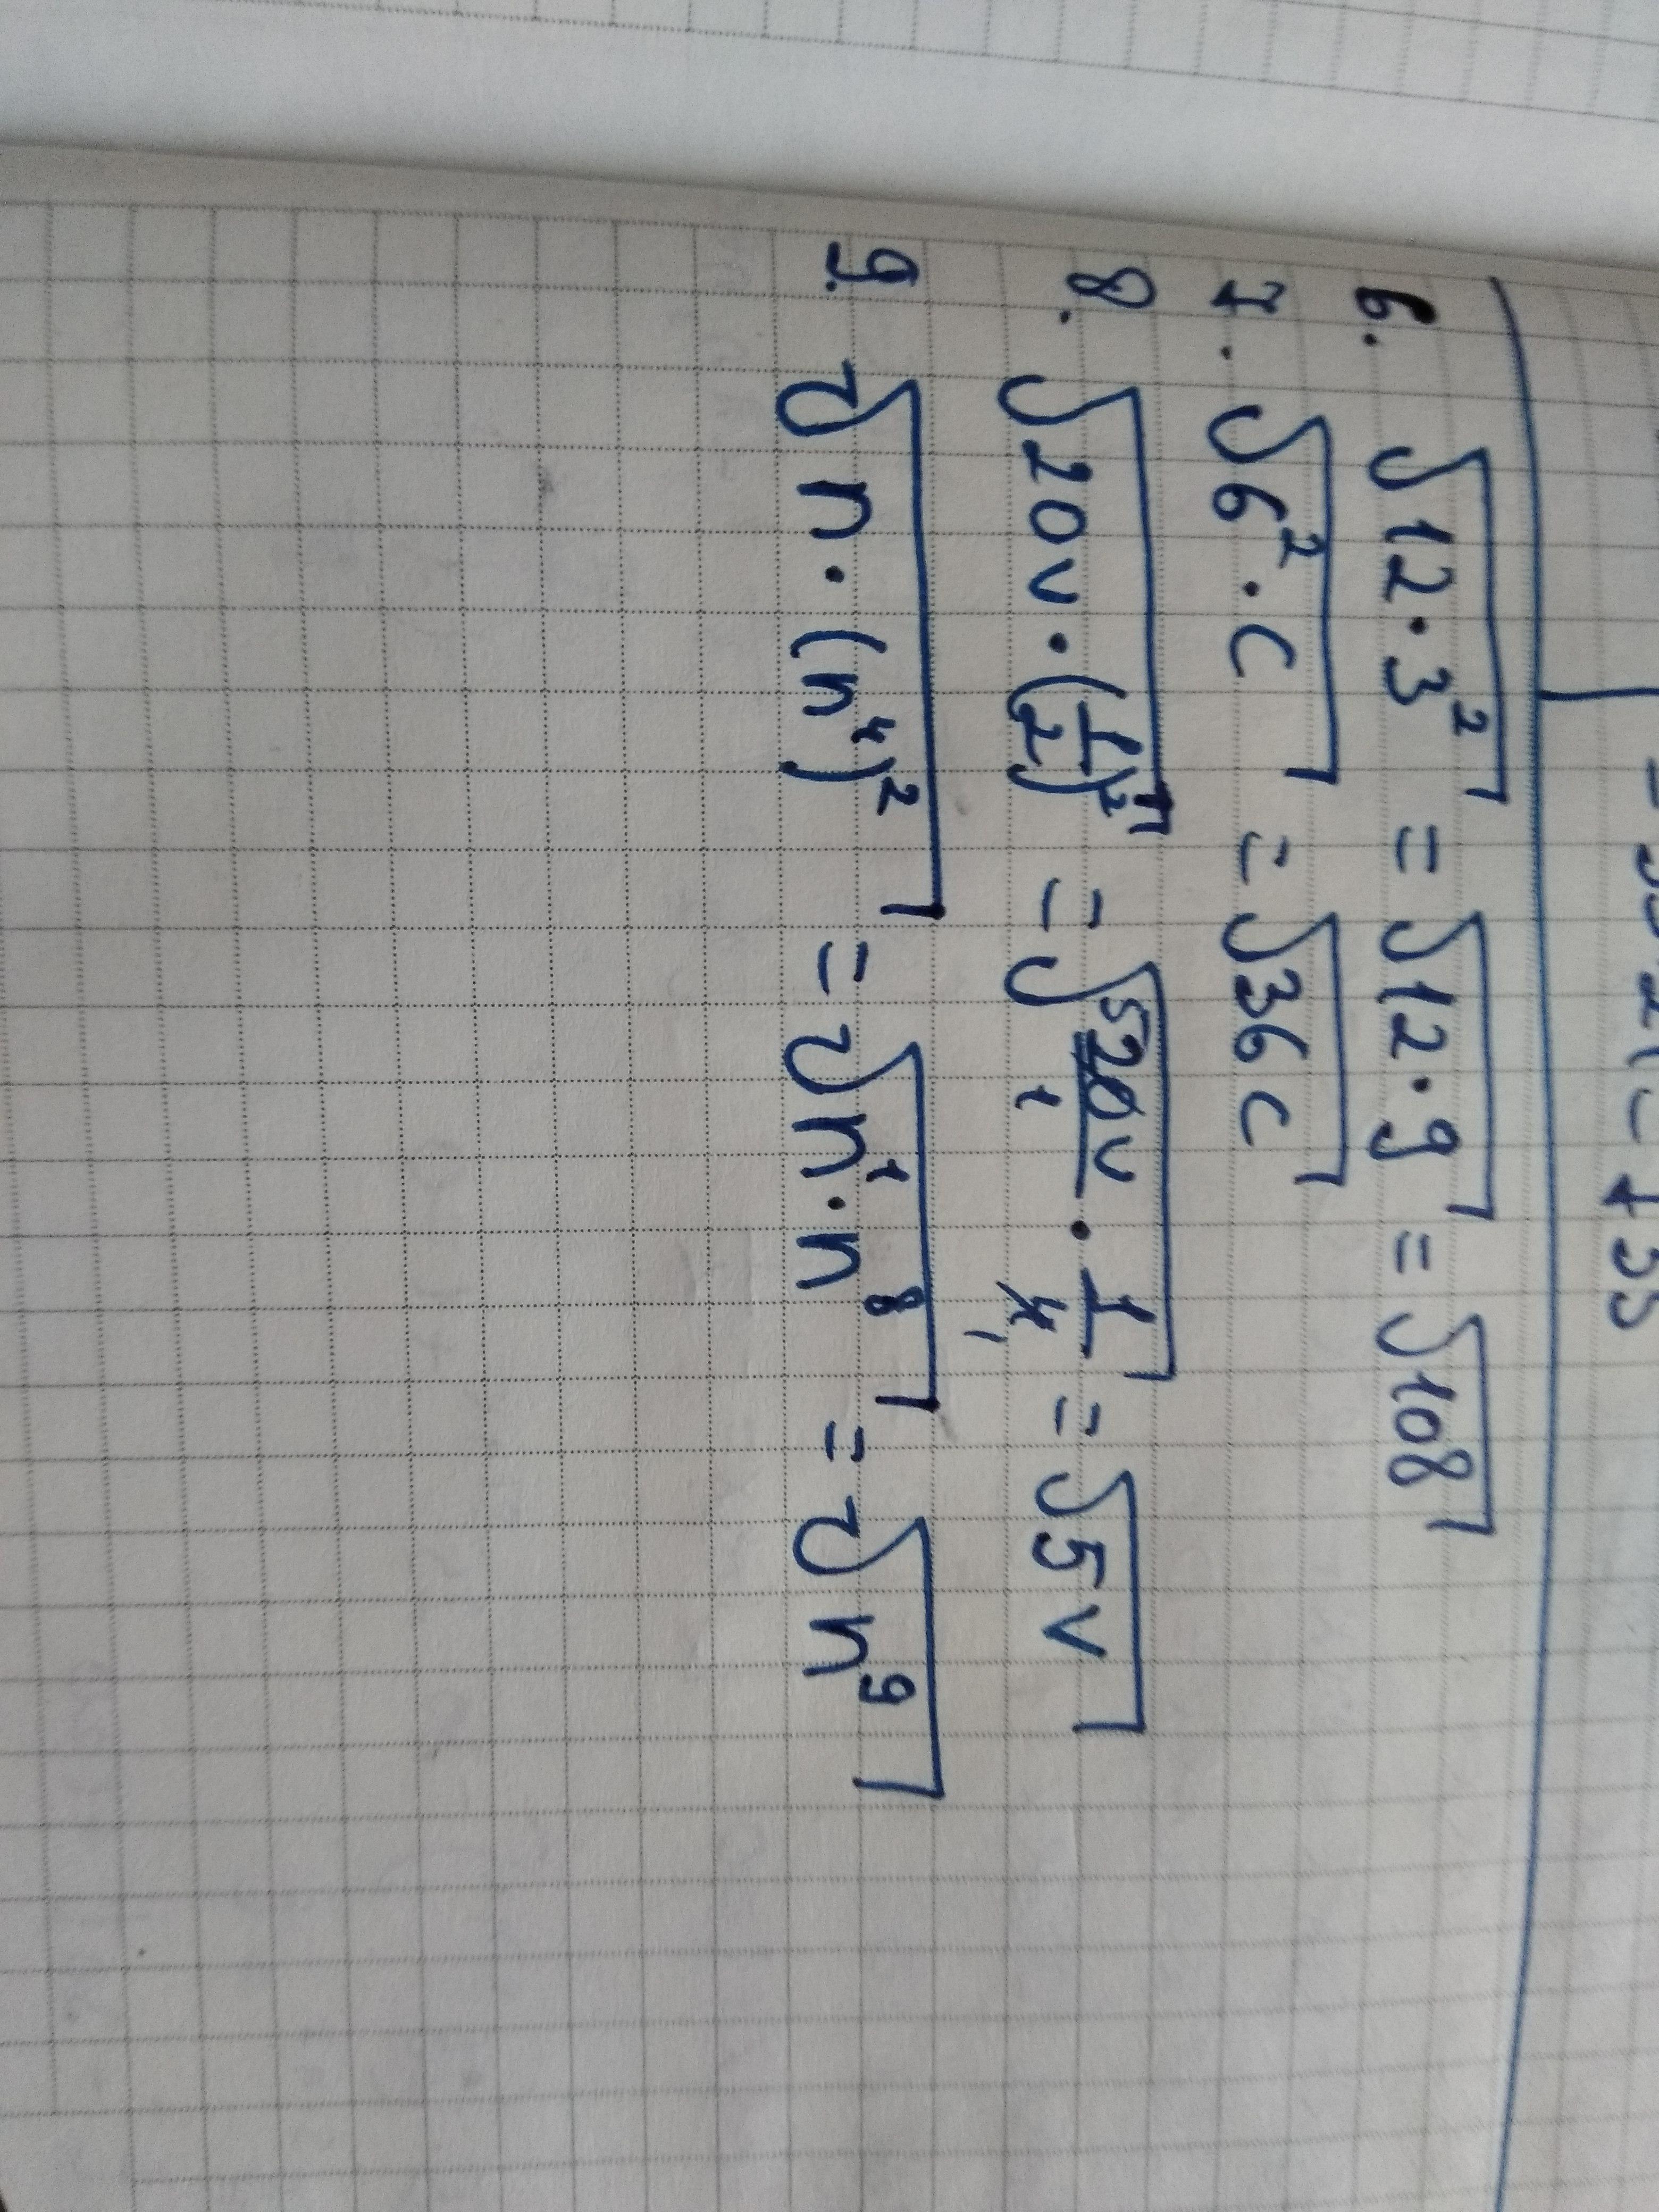 6. √12·3² = √12·9 = √108
7. √6²·c = √36c
8. √20v·(1/2)² = √20v/1 · 1/4 = √5v
9. √n·(n⁴)² = √n¹·n⁸ = √n⁹